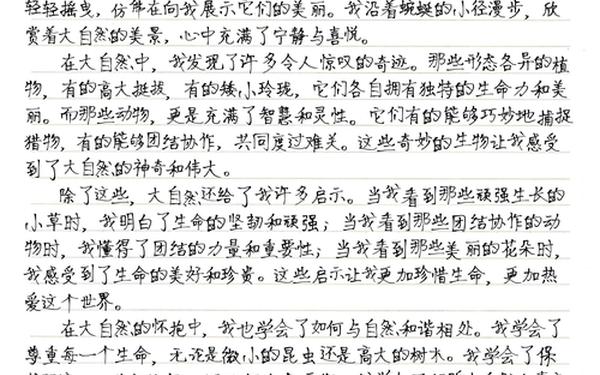 轻轻摇曳，仿佛在向我展示它们的美丽。我沿着蜿蜒的小径漫步，欣
赏着大自然的美景，心中充满了宁静与喜悦。
在大自然中，我发现了许多令人惊叹的奇迹。那些形态各异的植
物，有的高大挺拔，有的矮小玲珑，它们各自拥有独特的生命力和美
丽。而那些动物，更是充满了智慧和灵性。它们有的能够巧妙地捕捉
猎物，有的能够团结协作，共同度过难关。这些奇妙的生物让我感受
到了大自然的神奇和伟大。
除了这些，大自然还给了我许多启示。当我看到那些顽强生长的
小草时，我明白了生命的坚韧和顽强；当我看到那些团结协作的动
物时，我懂得了团结的力量和重要性；当我看到那些美丽的花朵时，
我感受到了生命的美好和珍贵。这些启示让我更加珍惜生命，更加热
爱这个世界。
在大自然的怀抱中，我也学会了如何与自然和谐相处。我学会了
尊重每一个生命，无论是微小的昆虫还是高大的树木。我学会了保